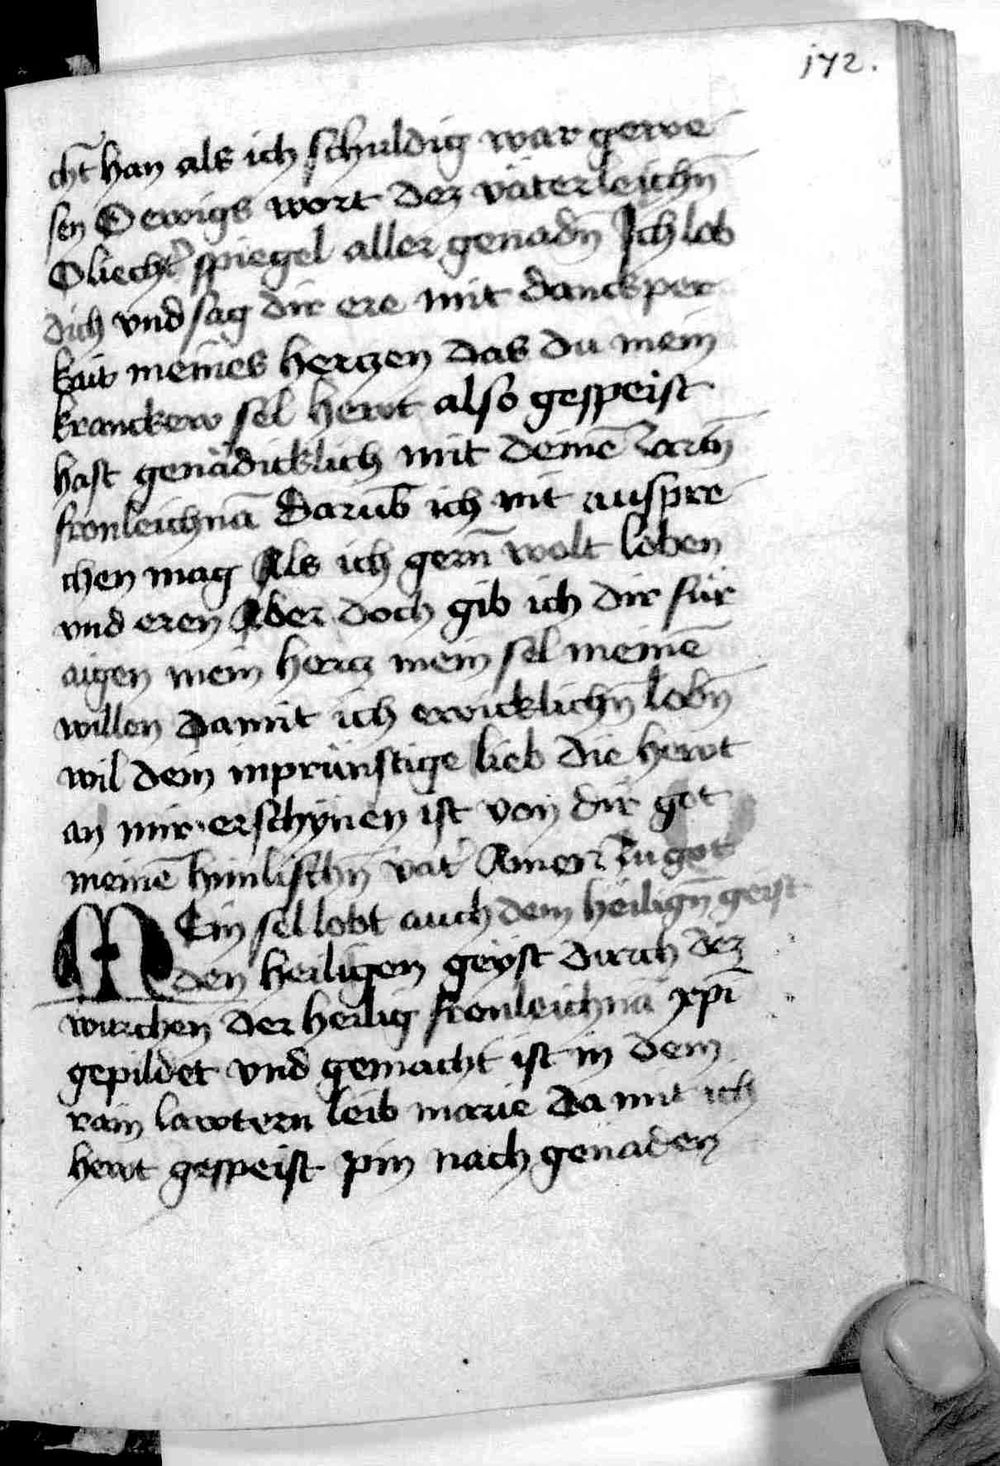 172.
cht han als ich schuldig war gewe
sen O ewigs wort dez väterleichn̄
O liecht' spiegel aller genadn̄ Ich lob
dich vnd sag dir ere mit danckper
kait meines herczen das du mein
kranckew sel hewt also gespeist
hast genädicklich mit deinē zartn̄
fronleichnā Darub̄ ich nit auspre
chen mag Als ich gern̄ wolt loben
vnd eren Aber doch gib ich dir für
aigen mein hercz mein sel meinē
willen Damit ich ewicklichn̄ lobn̄
wil dein inprünstige lieb die hewt
an mir erschynen ist von dir got
meinē himlischn̄ vat' Amen Zu got
MEin sel lobt auch dem heilign̄ geist
den heiligen geyst durch dez
wurchen der heilig fronleichnā xp̄i
gepildet vnd gemacht ist in dem
rain lawtern leib marie Da mit ich
hewt gespeist pin nach genaden